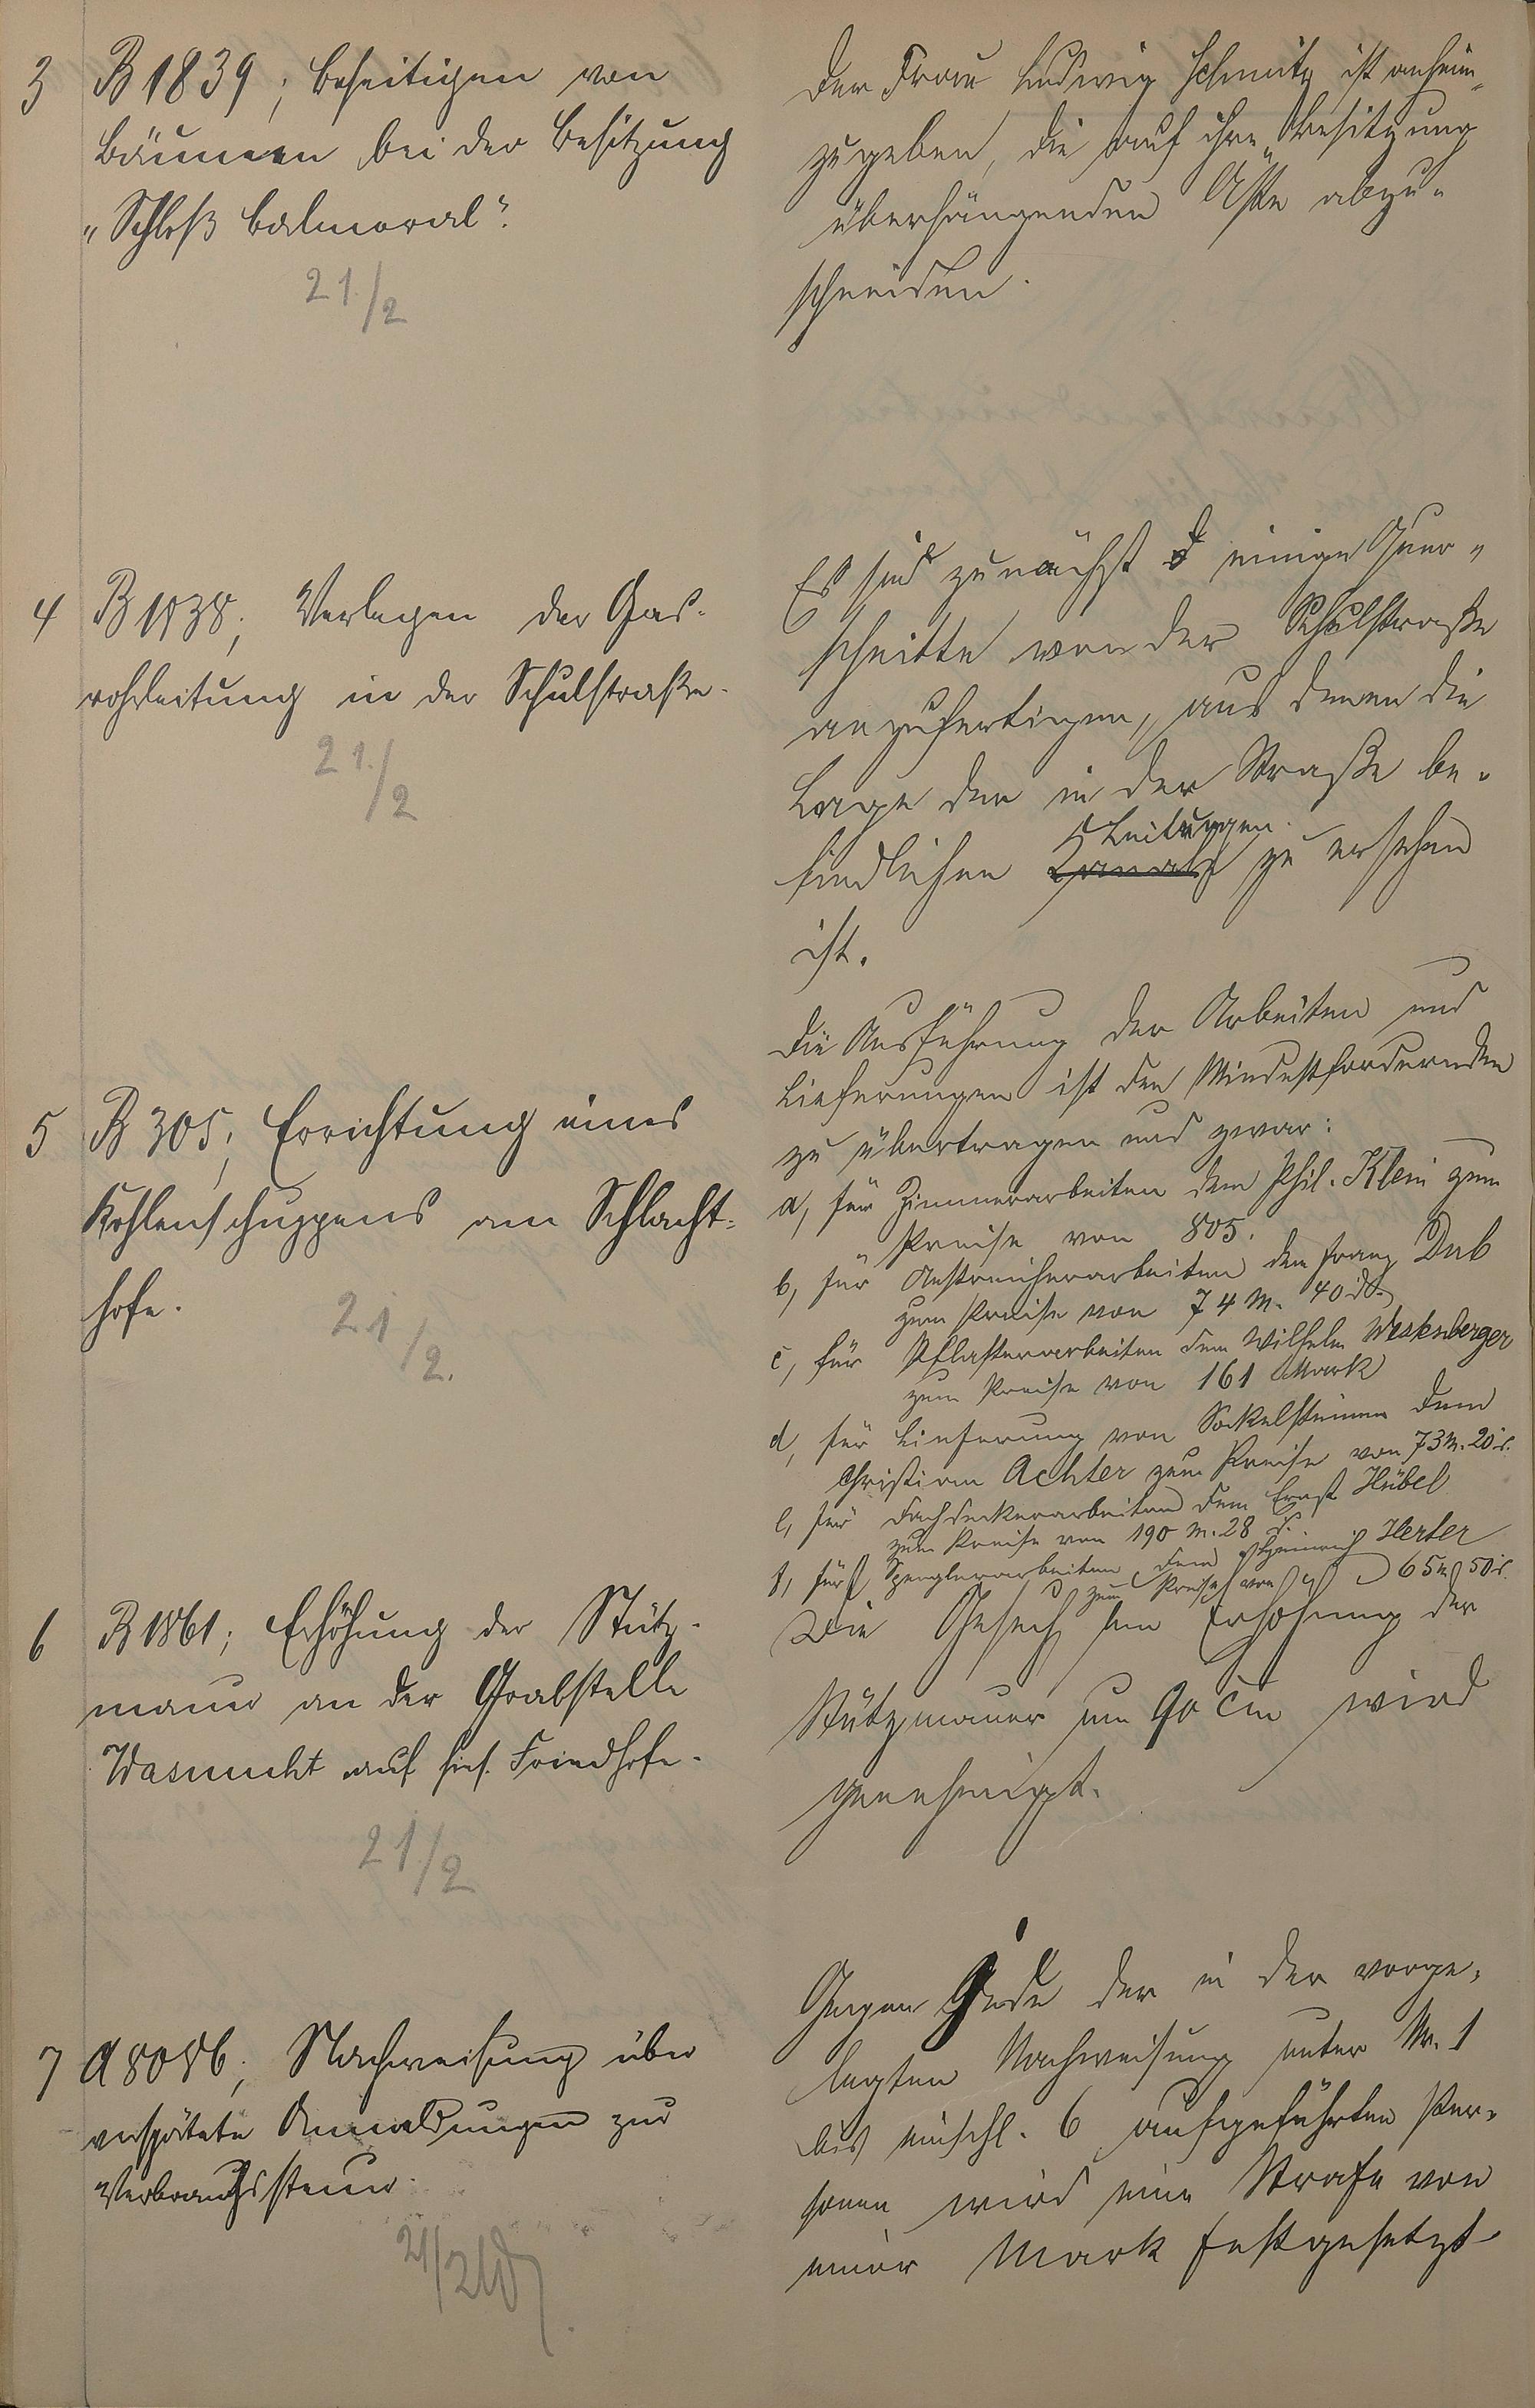 3 B 1839; Beseitigen von
Bäumen bei der Besitzung
„Schloß Balmoral".
21./2
Der Frau Ludwig Schmitz ist anheim-
zugeben, die auf ihre Besitzung
überhängenden Äste abzu-
schneiden.
4 B 1838; Verlegen der Gas-
rohrleitung in der Schulstraße.
21./2
Es sind zunächst einige Quer-
schnitte von der Schulstraße
anzufertigen, aus denen die
Lage der in der Straße be-
Leitungen
findlichen Kanäle zu ersehen
ist.
5 B 305; Errichtung eines
Kohlenschuppens am Schlacht-
hofe.
21/2.
Die Ausführung der Arbeiten und
Lieferungen ist den Mindestfordernden
zu übertragen und zwar:
a, für Zimmerarbeiten dem Phil. Klein zum
Preise von 805.
b, für Anstreicherarbeiten dem Franz Dub
zum Preise von 74 M. 40 d.
c, für Pflasterarbeiten dem Wilhelm
zum Preise von 161 Mark
d, für Lieferung von Sockelsteinen dem
Christian Achter zum Preise von 73 M. 20 d.
e, für Dachdeckerarbeiten dem Ernst Hübel
zum Preise von 190 M. 28 d.
f, für Spenglerarbeiten dem Heinrich Herter
zum Preise von 65 M 50 d.
6 B 1861; Erhöhung der Stütz-
mauer an der Grabstelle
Wasmuht auf hies. Friedhofe.
21/2
Die Gesuch um Erhöhung der
Stützmauer um 90 cm wird
genehmigt.
7 A 8086; Nachweisung über
verspätete Anmeldungen zur
Verbrauchssteuer.
21/2
Gegen Jede der in der vorge-
legten Nachweisung unter Nr. 1
bis einschl. 6 aufgeführten Per-
sonen wird eine Strafe von
einer Mark festgesetzt.